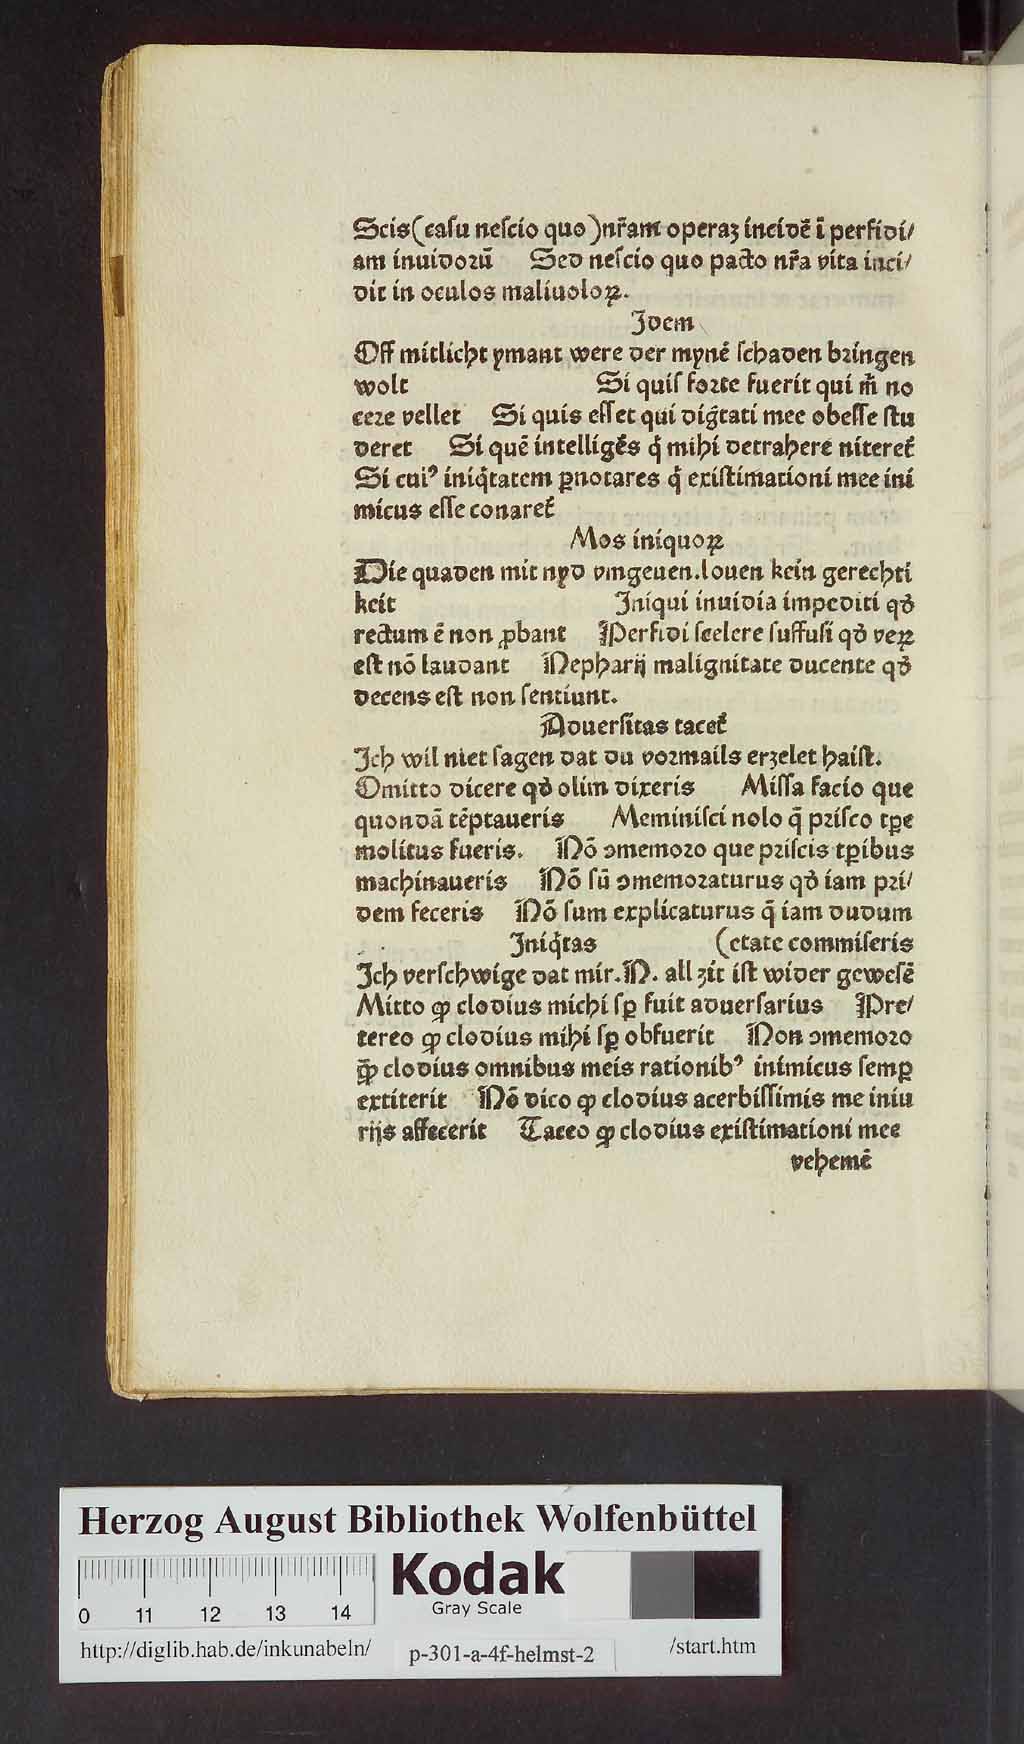 Scis (casu nescio quo) nr̄am operaꝫ incidē ī perfidi/
am inuidorū Sed nescio quo pacto nr̄a vita inci/
dit in oculos maliuoloꝝ.
Idem
Off mitlicht ymant were der mynē schaden bringen
wolt Si quis forte fuerit qui m̄ no
cere vellet Si quis esset qui diḡtati mee obesse stu
deret Si quē intelligēs q̄ mihi detrahere niteret᷑
Si cuiꝰ iniq̄tatem ꝑnotares q̄ existimationi mee ini
micus esse conaret᷑
Mos iniquoꝝ
Die quaden mit nyd vmgeuen. louen kein gerechti
keit Iniqui inuidia impediti qd̾
rectum ē non ꝓbant Perfidi scelere suffusi qd̾ veꝝ
est nō laudant Nepharij malignitate ducente qd̾
decens est non sentiunt.
Aduersitas tacet᷑
Ich wil niet sagen dat du vormails erzelet haist.
Omitto dicere qd̾ olim dixeris Missa facio que
quondā tēptaueris Meminisci nolo q̄ prisco tꝑe
molitus fueris. Nō ɔmemoro que priscis tꝑibus
machinaueris Nō sū ɔmemoraturus qd̾ iam pri/
dem feceris Nō sum explicaturus q̄ iam dudum
Iniq̄tas (etate commiseris
Ich verschwige dat mir. N. all zit ist wider gewesē
Mitto ꝙ clodius michi sꝑ fuit aduersarius Pre/
tereo ꝙ clodius mihi sꝑ obfuerit Non ɔmemoro
ꝙ̄ clodius omnibus meis rationibꝰ inimicus semꝑ
extiterit Nō dico ꝙ clodius acerbissimis me iniu
rijs affecerit Taceo ꝙ clodius existimationi mee
vehemē
Herzog August Bibliothek Wolfenbüttel
0 11 12 13 14
Kodak
Gray Scale
http://diglib.hab.de/inkunabeln/ p-301-a-4f-helmst-2 /start.htm